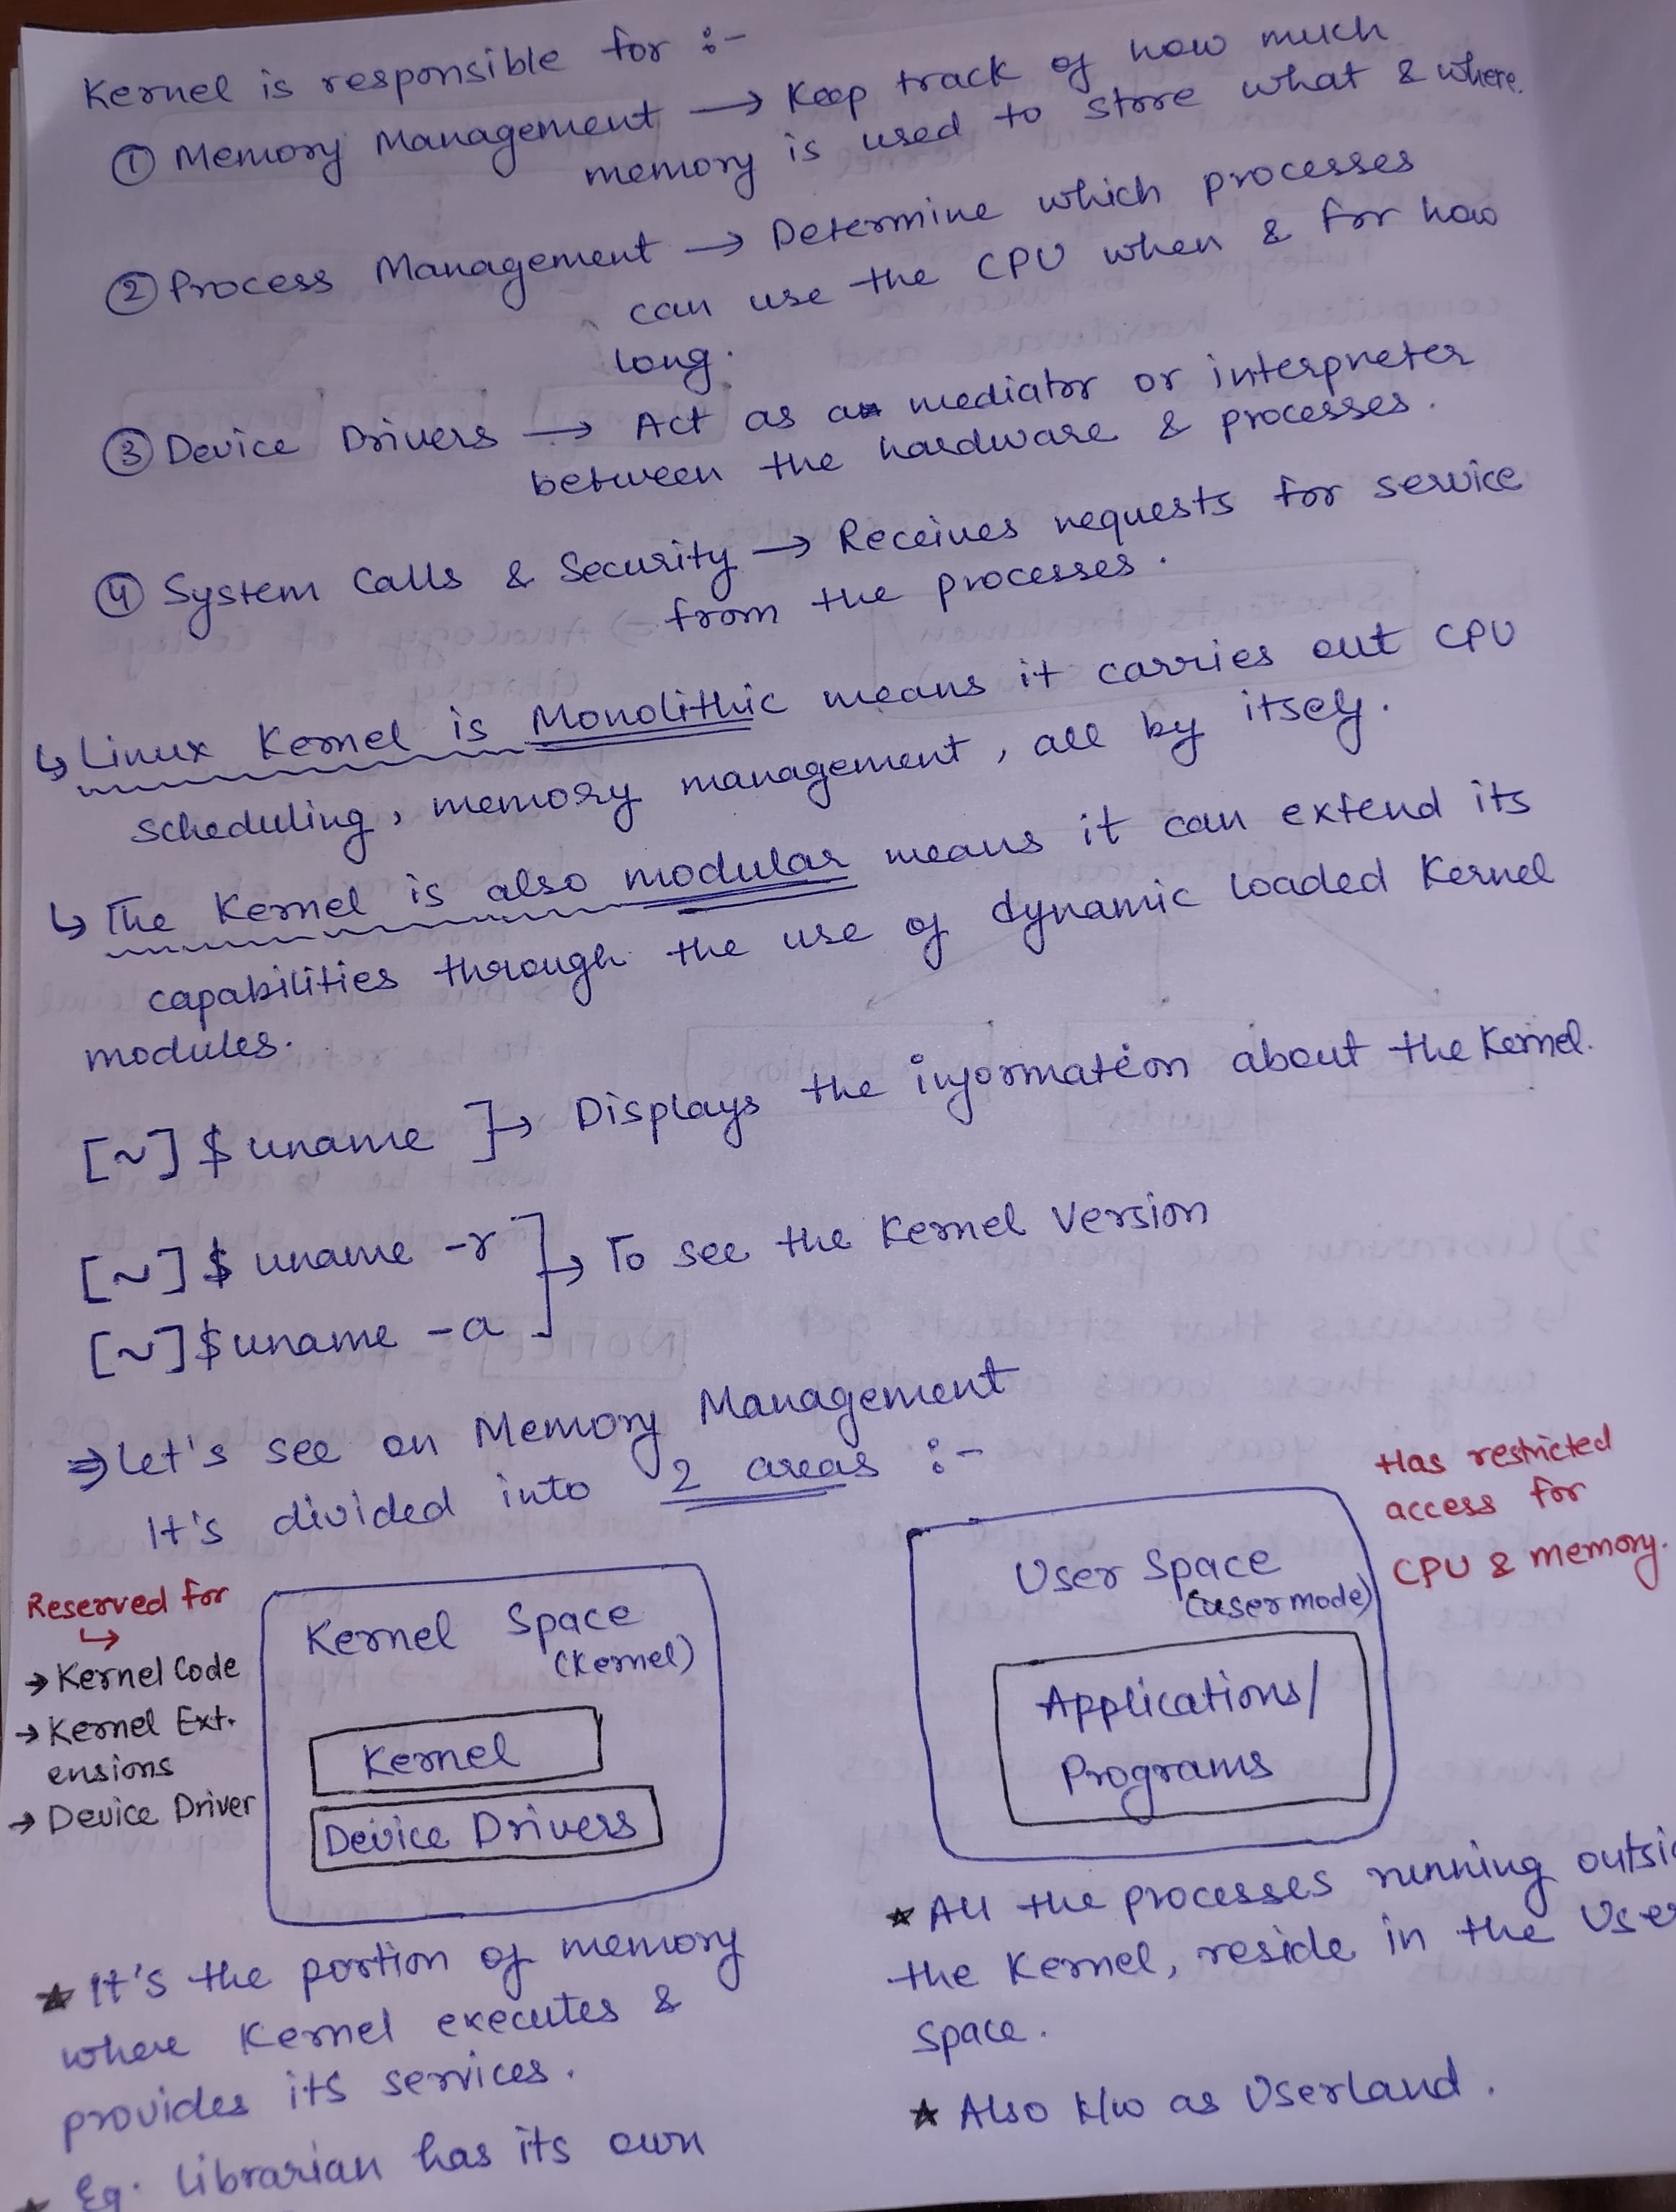 Kernel is responsible for :-
① Memory Management → Keep track of how much
memory is used to store what & where.
② Process Management → Determine which processes
can use the CPU when & for how
long.
③ Device Drivers → Act as a mediator or interpreter
between the hardware & processes.
④ System Calls & Security → Receives requests for service
from the processes.
↳ Linux Kernel is Monolithic means it carries out CPU
scheduling, memory management, all by itself.
↳ The Kernel is also modular means it can extend its
capabilities through the use of dynamic loaded Kernel
modules.
[~]$ uname ]→ Displays the information about the Kernel.
[~]$ uname -r ]→ To see the Kernel Version
[~]$ uname -a
⇒ Let's see on Memory Management
It's divided into 2 areas :-
Reserved for
↳
→ Kernel Code
→ Kernel Ext-
ensions
→ Device Driver
Kernel Space
(Kernel)
Kernel
Device Drivers
★ It's the portion of memory
where Kernel executes &
provides its services.
★ Eg. Librarian has its own
Has restricted
access for
CPU & memory.
User Space
(user mode)
Applications/
Programs
★ All the processes running outsi
the Kernel, reside in the User
space.
★ Also k/w as Userland.